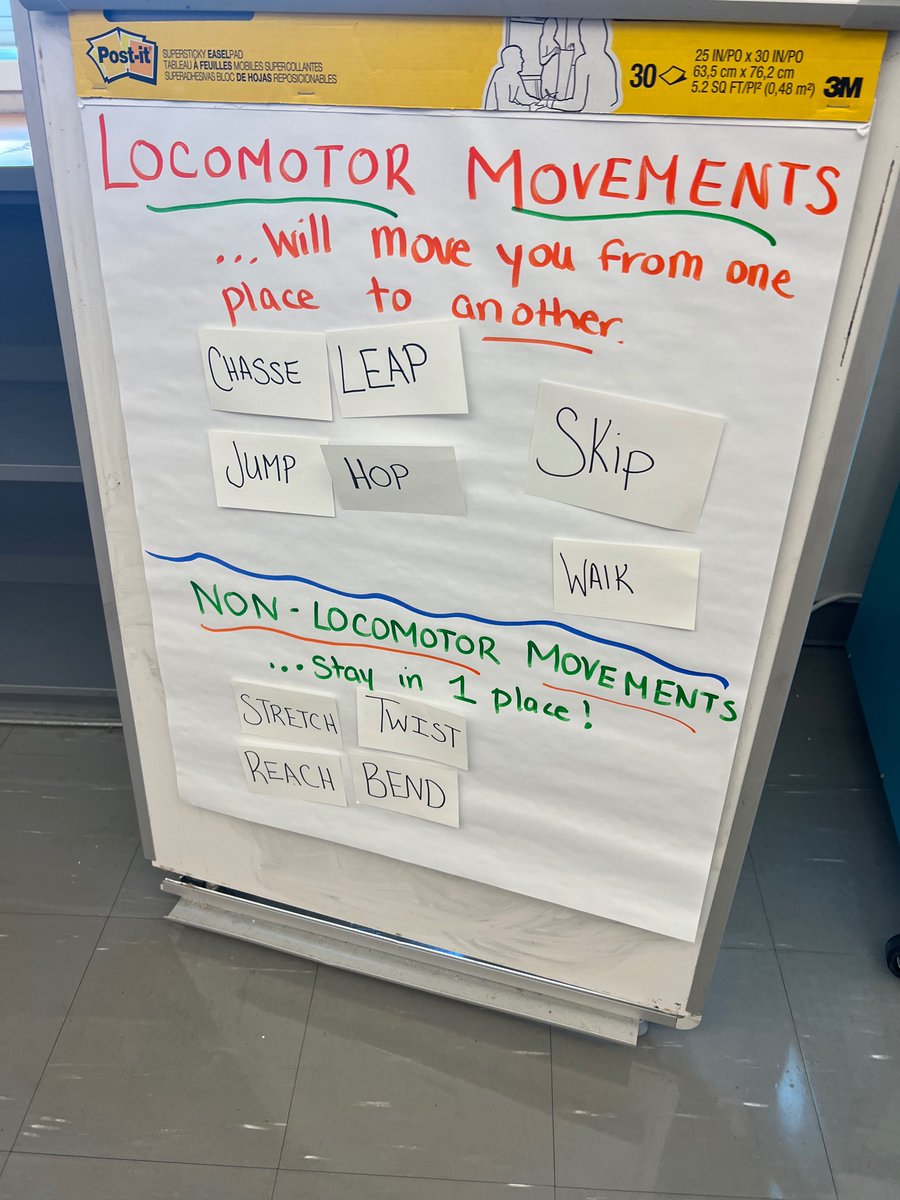 Post-it
SUPERSTICKY EASEL PAD
TABLEAU À FEUILLES MOBILES SUPERCOLLANTES
SUPERADHESIVAS BLOC DE HOJAS REPOSICIONABLES
30
25 IN/PO x 30 IN/PO
63,5 cm x 76,2 cm
5.2 SQ FT/PI² (0,48 m²)
3M
LOCOMOTOR MOVEMENTS
...Will move you from one
place to another.
CHASSE LEAP
JUMP HOP
SKip
WAlK
NON-LOCOMOTOR MOVEMENTS
...stay in 1 place!
STRETCH TWIST
REACH BEND